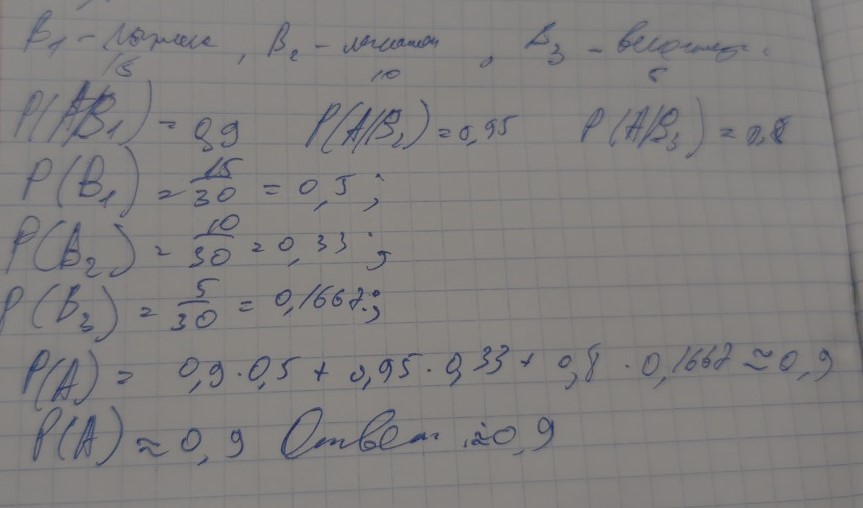 B₁ - лыжник, B₂ - , B₃ - велосипед.
15 10 5
P(A/B₁) = 0,9 P(A/B₂) = 0,95 P(A/B₃) = 0,8
P(B₁) = 15/30 = 0,5 ;
P(B₂) = 10/30 = 0,33 ;
P(B₃) = 5/30 = 0,1667 ;
P(A) = 0,9 · 0,5 + 0,95 · 0,33 + 0,8 · 0,1667 ≈ 0,9
P(A) ≈ 0,9 Ответ: ≈0,9